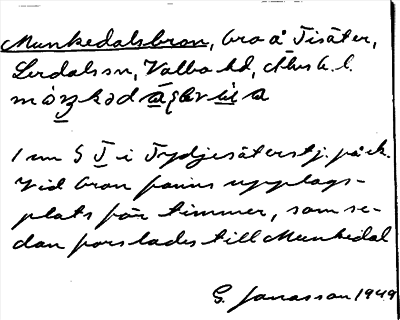 Munkedalsbron, bro å Tisäter,
Lerdals sn, Valbo hd, Ábus l.
1 mm S I i Tydjesäterstj. på ek.
Vid bron fanns upplags-
plats för timmer, som se-
dan forslades till Munkedal
G. Jonasson 1949